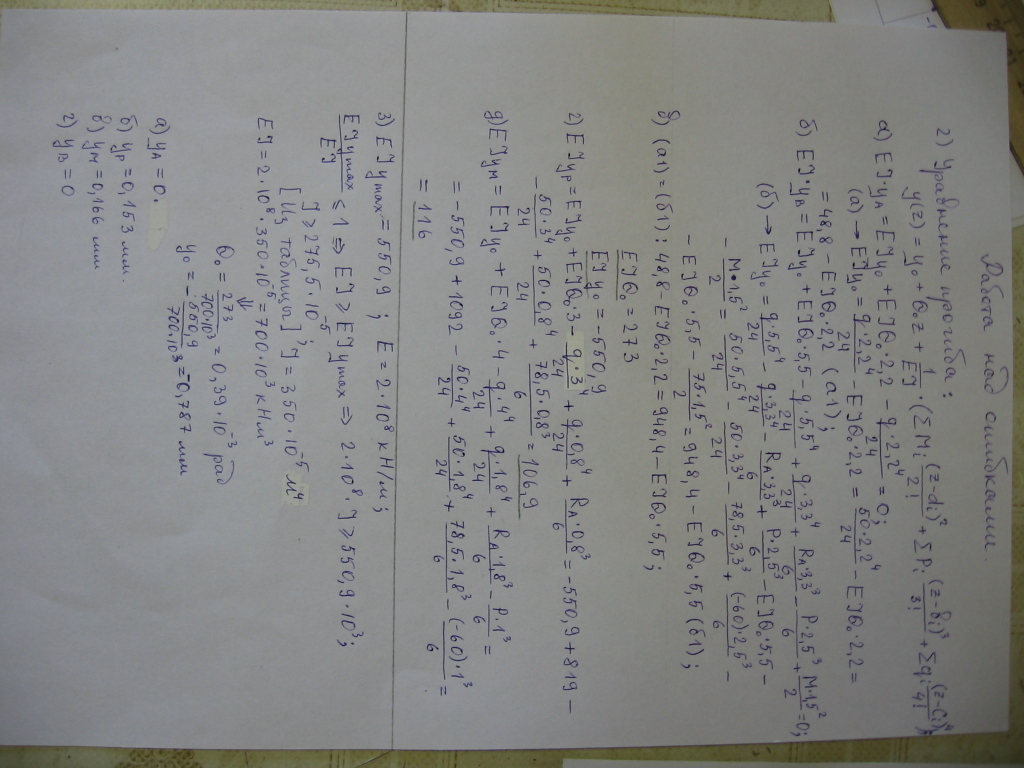 Работа над ошибками.
2) Уравнение прогиба:
y(z) = y₀ + θ₀z + 1/EJ · (ΣMᵢ (z-dᵢ)²/2! + ΣPᵢ (z-bᵢ)³/3! + Σqᵢ (z-cᵢ)⁴/4!);
а) EJ·yA = EJy₀ + EJθ₀·2,2 − q·2,2⁴/24 = 0;
(а) → EJy₀ = q·2,2⁴/24 − EJθ₀·2,2 = 50·2,2⁴/24 − EJθ₀·2,2 =
= 48,8 − EJθ₀·2,2 (а1);
б) EJyB = EJy₀ + EJθ₀·5,5 − q·5,5⁴/24 + q·3,3⁴/24 + RA·3,3³/6 − P·2,5³/6 + M·1,5²/2 = 0;
(б) → EJy₀ = q·5,5⁴/24 − q·3,3⁴/24 − RA·3,3³/6 + P·2,5³/6 − EJθ₀·5,5 −
− M·1,5²/2 = 50·5,5⁴/24 − 50·3,3⁴/24 − 78,5·3,3³/6 + (-60)·2,5³/6 −
− EJθ₀·5,5 − 75·1,5²/2 = 948,4 − EJθ₀·5,5 (б1);
в) (а1) = (б1): 48,8 − EJθ₀·2,2 = 948,4 − EJθ₀·5,5;
EJθ₀ = 273
EJy₀ = −550,9
г) EJyP = EJy₀ + EJθ₀·3 − q·3⁴/24 + q·0,8⁴/24 + RA·0,8³/6 = −550,9 + 819 −
− 50·3⁴/24 + 50·0,8⁴/24 + 78,5·0,8³/6 = 106,9
д) EJyM = EJy₀ + EJθ₀·4 − q·4⁴/24 + q·1,8⁴/24 + RA·1,8³/6 − P·1³/6 =
= −550,9 + 1092 − 50·4⁴/24 + 50·1,8⁴/24 + 78,5·1,8³/6 − (-60)·1³/6 =
= 116
3) EJymax = 550,9; E = 2·10⁸ кН/м;
EJymax/EJ ≤ 1 ⇒ EJ ≥ EJymax ⇒ 2·10⁸·J ≥ 550,9·10³;
J ≥ 275,5·10⁻⁵;
[Из таблицы] J = 350·10⁻⁵ м⁴
⇓
EJ = 2·10⁸·350·10⁻⁵ = 700·10³ кНм³
θ₀ = 273/700·10³ = 0,39·10⁻³ рад
y₀ = −550,9/700·10³ = 0,787 мм
а) yA = 0.
б) yP = 0,153 мм.
в) yM = 0,166 мм
г) yB = 0